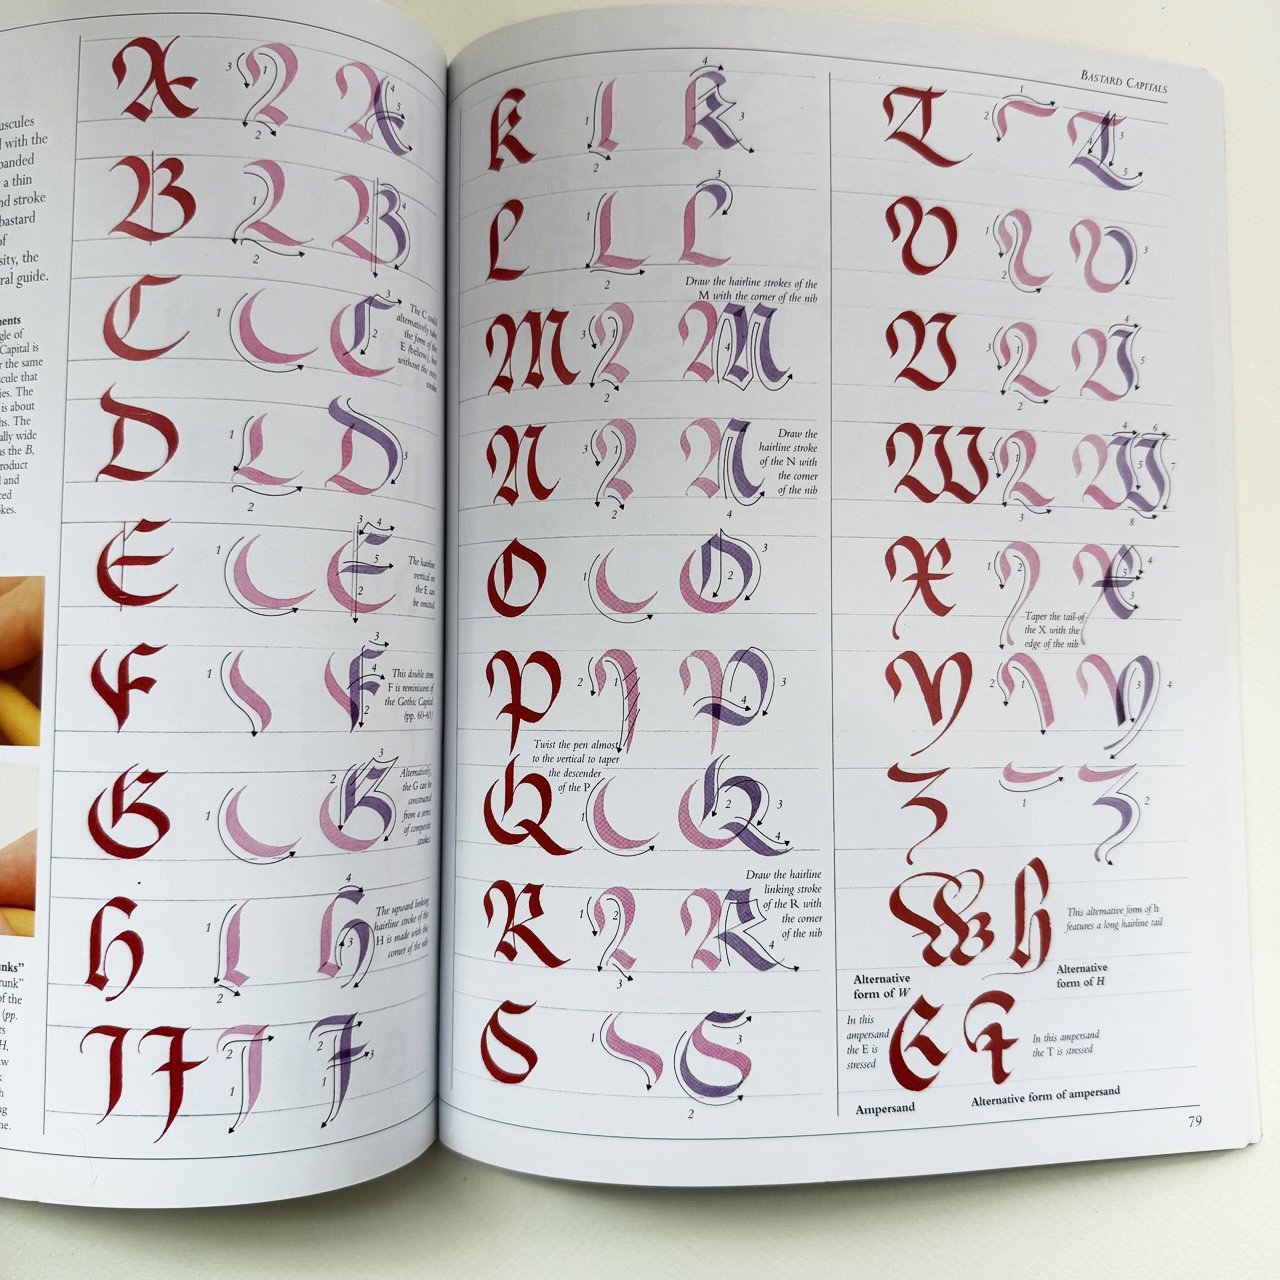 BASTARD CAPITALS
uscules
with the
panded
a thin
nd stroke
bastard
of
sity, the
ral guide.
ments
gle of
Capital is
r the same
scule that
ies. The
is about
hs. The
ally wide
as the B,
roduct
and
ced
kes.
unks”
runk”
of the
(pp.
H,
A 3 1 2 4 5
B 1 2 3 4
C 1 3 2
The C could
alternatively take
the form of the
E (below), but
without the cross
stroke
D 1 2 3
E 1 3 4 5 2
The hairline
vertical on
the E can
be omitted
F 1 3 4 2
This double stem
F is reminiscent of
the Gothic Capital
(pp. 60–61)
G 1 2 3
Alternatively,
the G can be
constructed
from a series
of composite
strokes
H 1 2 4 3
The upward linking
hairline stroke of the
H is made with the
corner of the nib
I J 2 1 2 3 1
K 1 2 4 3
L 1 2 3
Draw the hairline strokes of the
M with the corner of the nib
M 3 1 2 4
N 3 1 2 4
Draw the
hairline stroke
of the N with
the corner
of the nib
O 1 2 3
P 2 1 3 4
Twist the pen almost
to the vertical to taper
the descender
of the P
Q 1 2 3 4
Draw the hairline
linking stroke
of the R with
the corner
of the nib
R 1 2 3 4
S 1 3 2
T 1 2 3 4 5
U 1 2 3
V 3 1 2 4 5
W 2 1 3 4 6 5 7 8
X 1 2 4 5 3
Taper the tail of
the X with the
edge of the nib
Y 2 1 3 4
Z 1 2
W H
This alternative form of h
features a long hairline tail
Alternative
form of W
Alternative
form of H
In this
ampersand
the E is
stressed
& &
In this ampersand
the T is stressed
Ampersand
Alternative form of ampersand
79